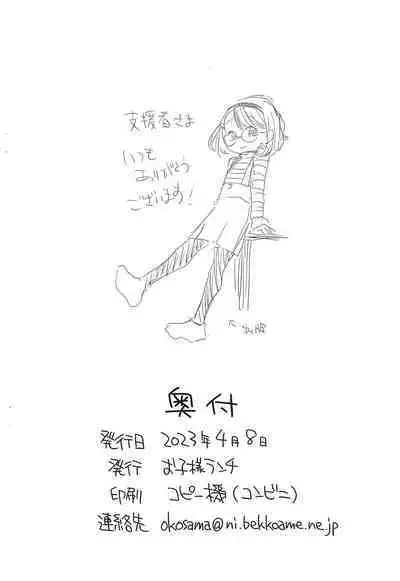 支援者さま
いつも
ありがとう
ございます!
奥付
発行日 2023年4月8日
発行 お子様ランチ
印刷 コピー機(コンビニ)
連絡先 okosama@ni.bekkoame.ne.jp